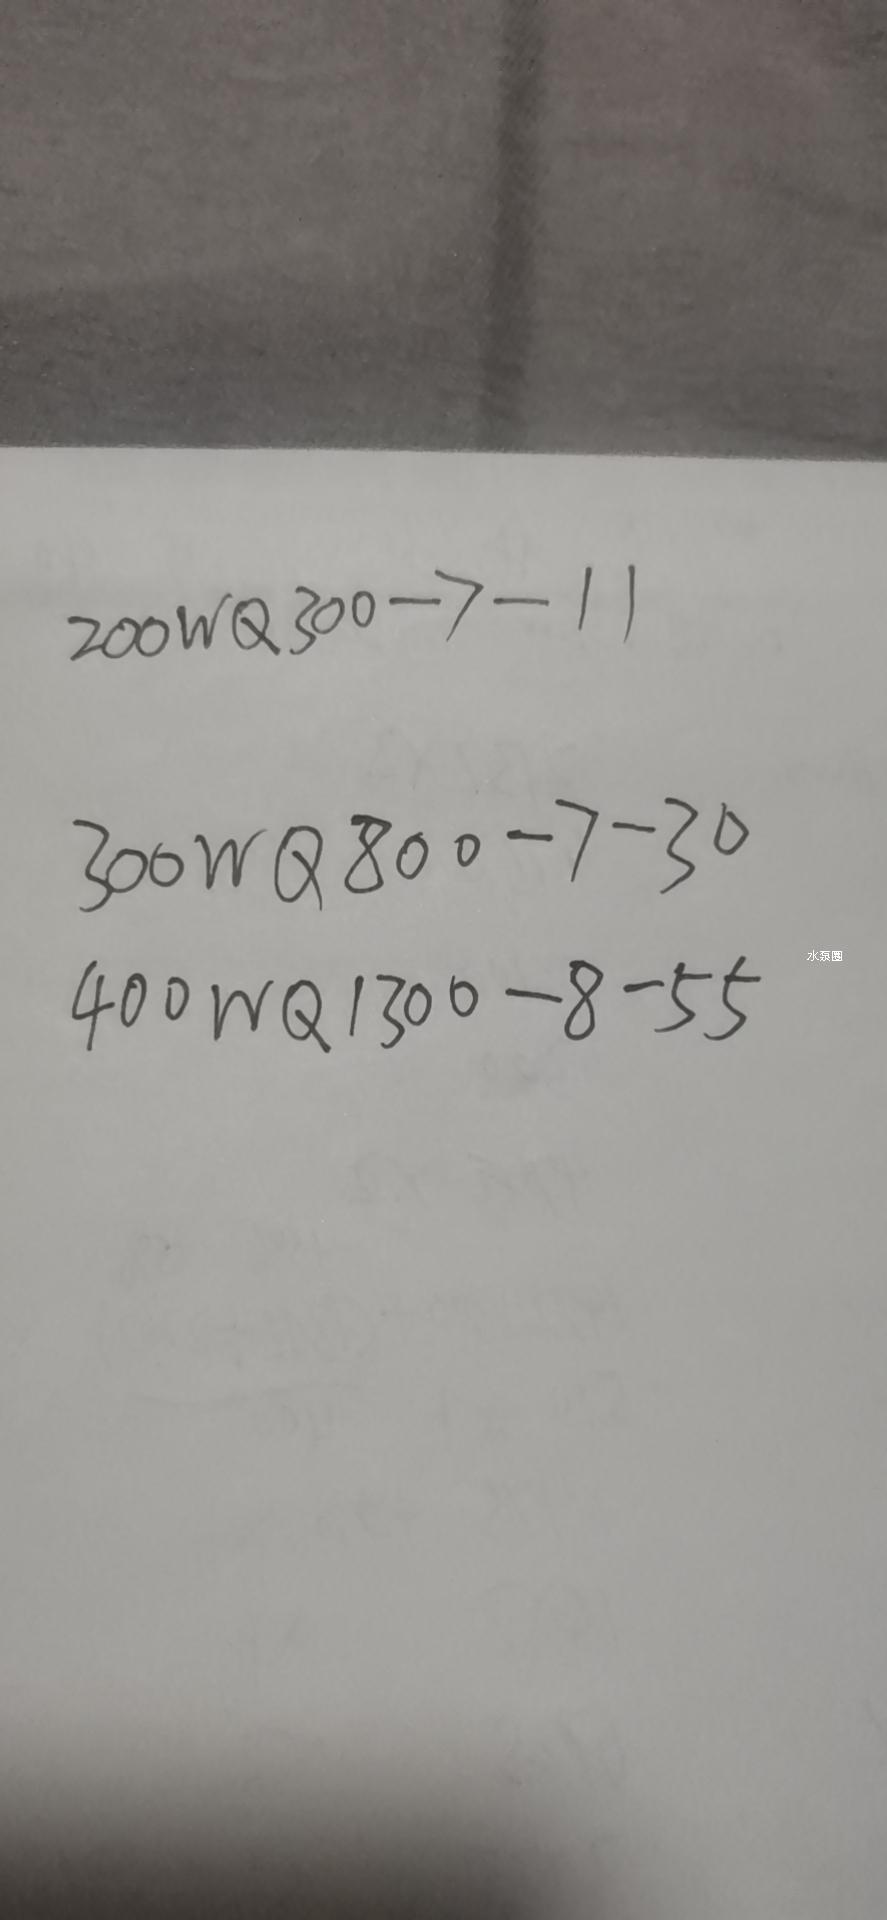 200WQ300-7-11
300WQ800-7-30
水泵圈
400WQ1300-8-55